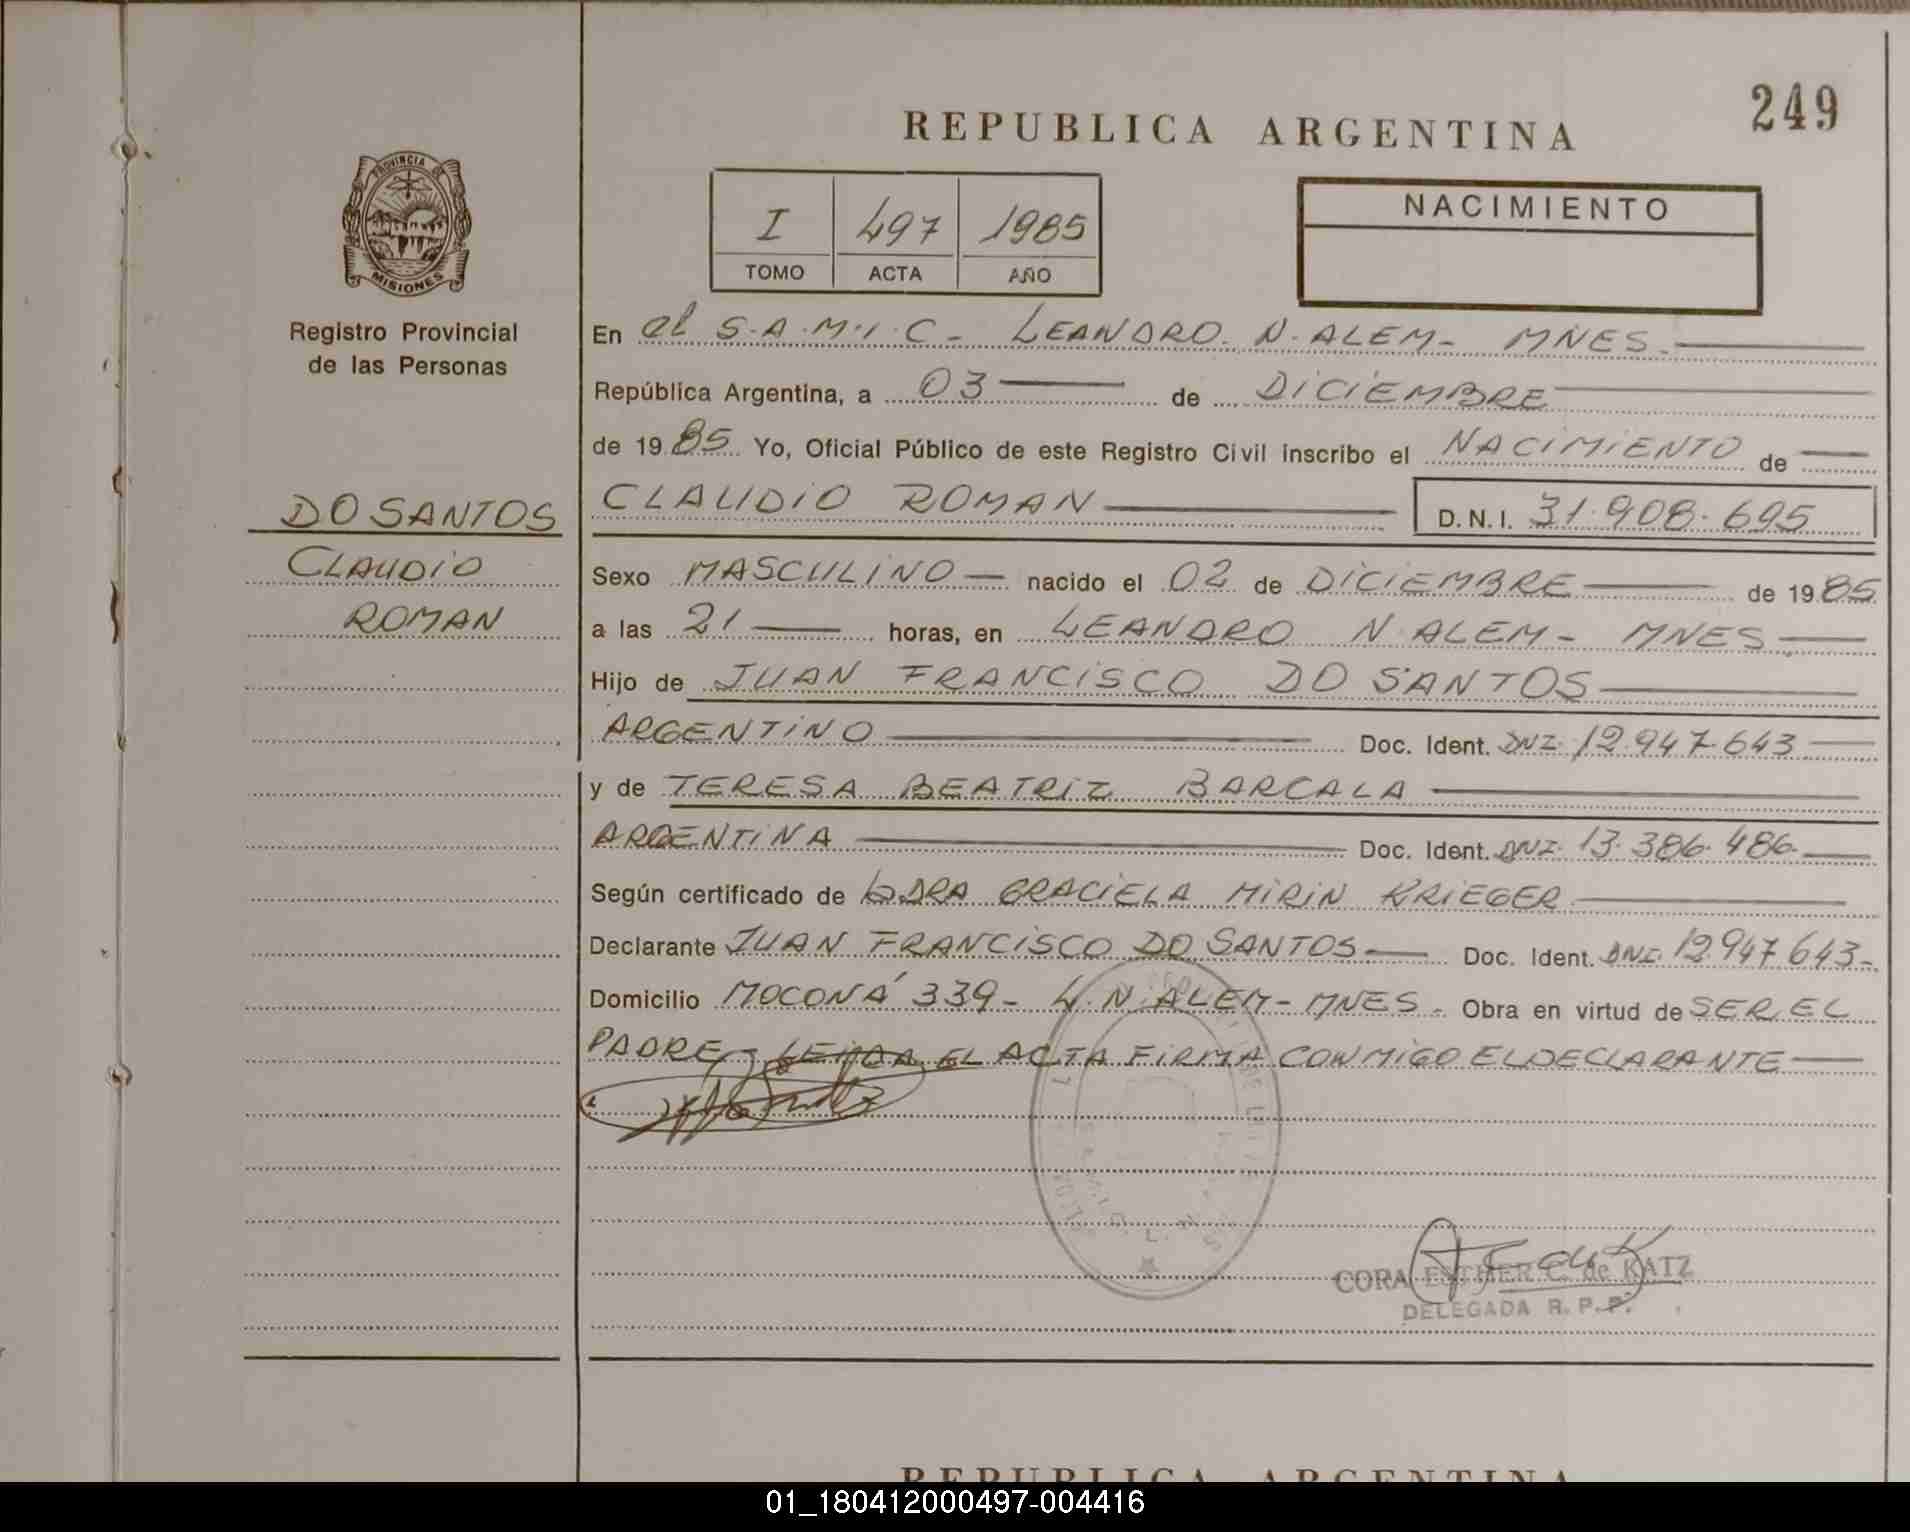 249
REPUBLICA ARGENTINA
PROVINCIA DE
MISIONES
Registro Provincial
de las Personas
I 497 1985
TOMO ACTA AÑO
NACIMIENTO
En el S.A.M.I.C- LEANDRO. N. ALEM- MNES.
República Argentina, a 03 de DICIEMBRE
de 1985 Yo, Oficial Público de este Registro Civil inscribo el NACIMIENTO de
DO SANTOS
CLAUDIO
ROMAN
CLAUDIO ROMAN D.N.I. 31.908.695
Sexo MASCULINO nacido el 02 de DICIEMBRE de 1985
a las 21 horas, en LEANDRO N. ALEM- MNES.
Hijo de JUAN FRANCISCO DO SANTOS
ARGENTINO Doc. Ident. DNI. 12.947.643
y de TERESA BEATRIZ BARCALA
ARGENTINA Doc. Ident. DNI. 13.386.486.
Según certificado de DRA GRACIELA MIRIN KRIEGER
Declarante JUAN FRANCISCO DO SANTOS Doc. Ident. DNI. 12.947643-
Domicilio MOCONÁ 339- L.N. ALEM- MNES. Obra en virtud de SER EL
PADRE- LEIDA EL ACTA FIRMA CONMIGO EL DECLARANTE
CORA ESTHER C. de KATZ
DELEGADA R.P.P.
REPUBLICA ARGENTINA
01_180412000497-004416